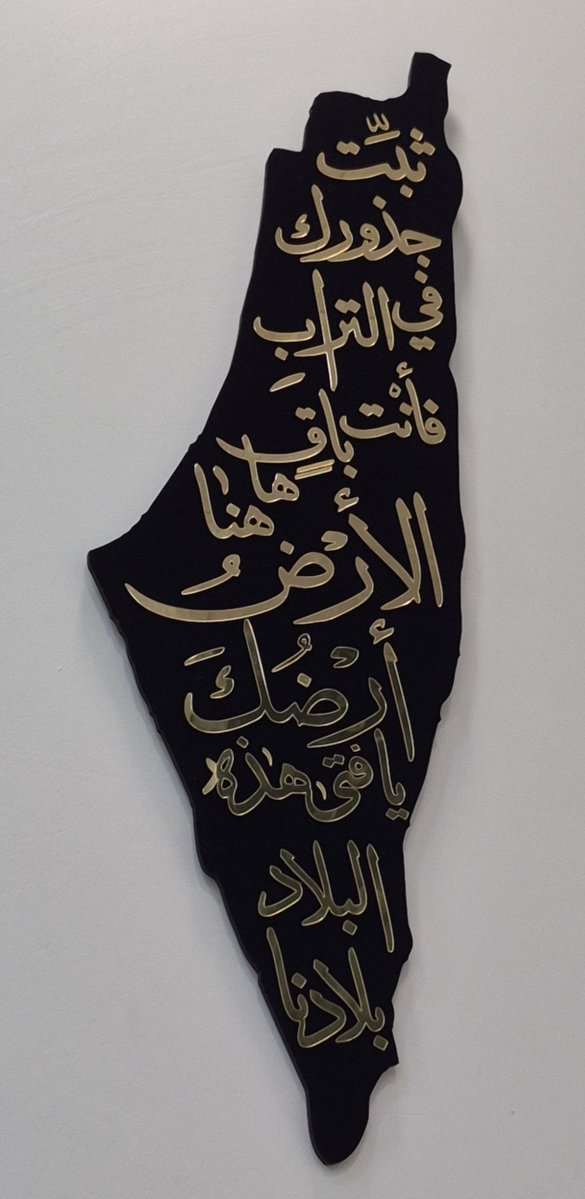 ثبِّت
جذورك
في الترابِ
فأنْت باقٍ
ها هنا
الأرْضُ
أرْضُكَ
يا فتى هذه
البلاد
بلادنا